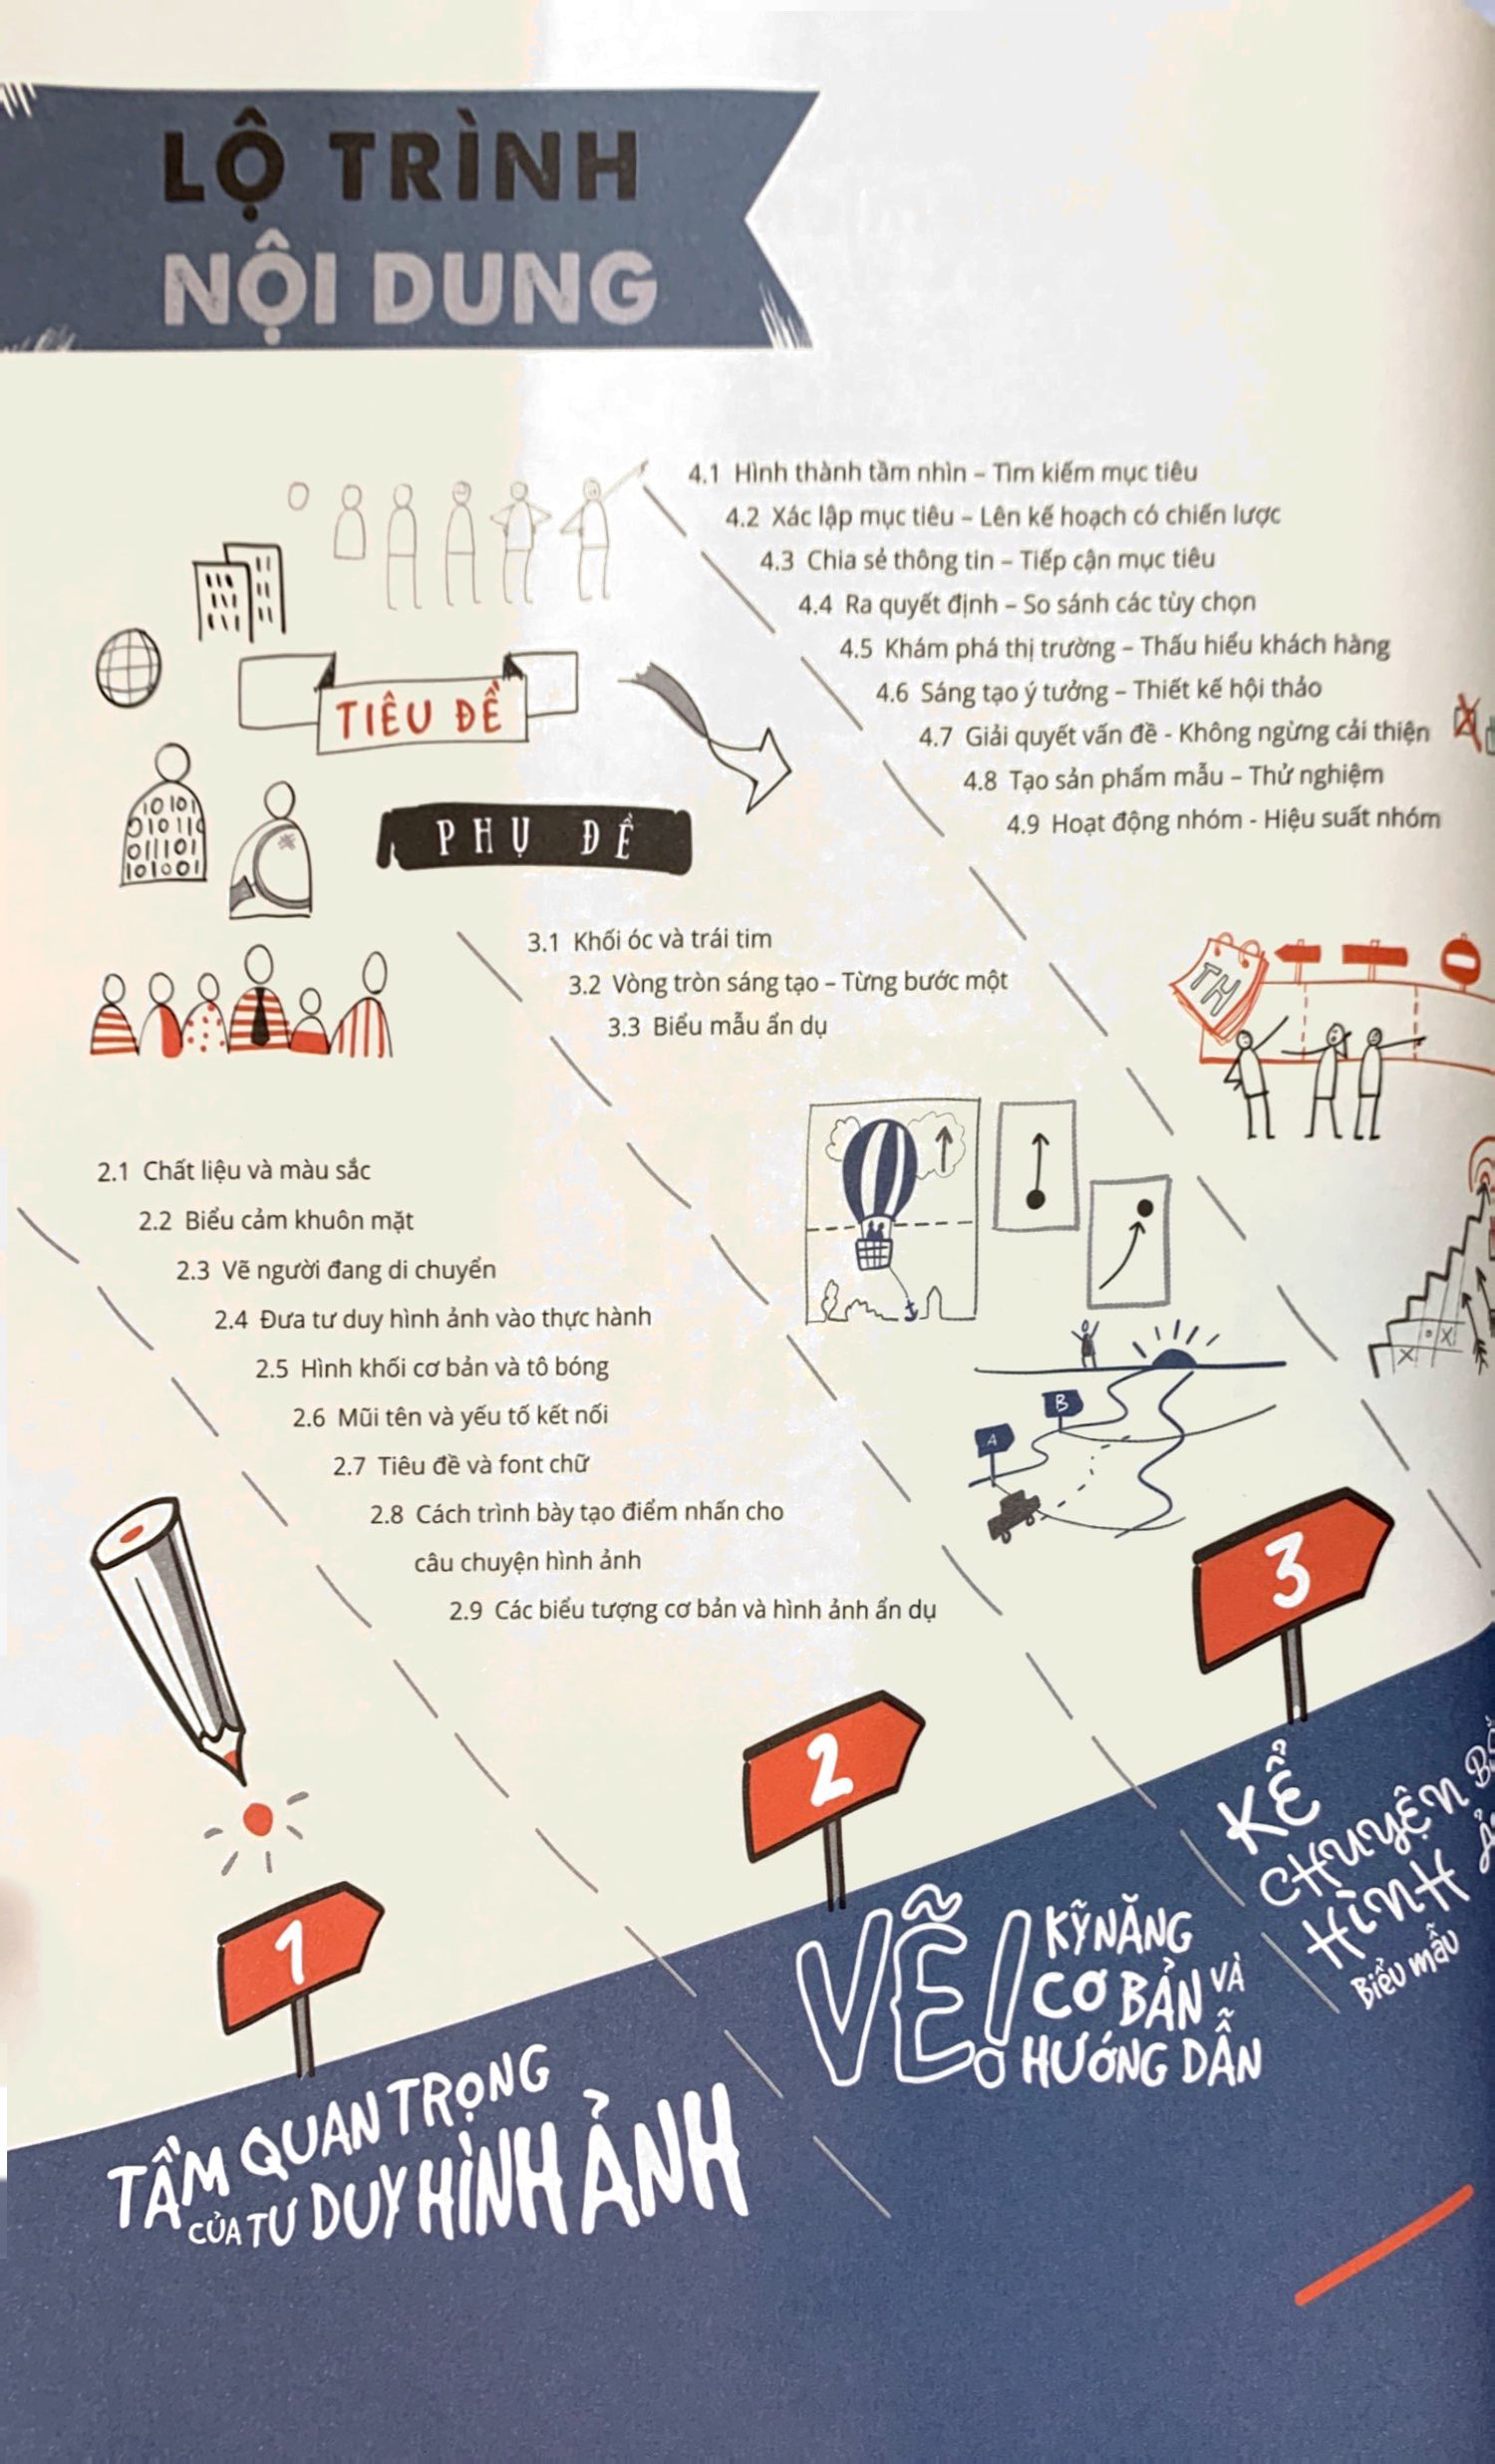 LỘ TRÌNH
NỘI DUNG
4.1 Hình thành tầm nhìn – Tìm kiếm mục tiêu
4.2 Xác lập mục tiêu – Lên kế hoạch có chiến lược
4.3 Chia sẻ thông tin – Tiếp cận mục tiêu
4.4 Ra quyết định – So sánh các tùy chọn
4.5 Khám phá thị trường – Thấu hiểu khách hàng
4.6 Sáng tạo ý tưởng – Thiết kế hội thảo
4.7 Giải quyết vấn đề - Không ngừng cải thiện
4.8 Tạo sản phẩm mẫu – Thử nghiệm
4.9 Hoạt động nhóm - Hiệu suất nhóm
TIÊU ĐỀ
PHỤ ĐỀ
10101
010110
011101
101001
3.1 Khối óc và trái tim
3.2 Vòng tròn sáng tạo – Từng bước một
3.3 Biểu mẫu ẩn dụ
TH
2.1 Chất liệu và màu sắc
2.2 Biểu cảm khuôn mặt
2.3 Vẽ người đang di chuyển
2.4 Đưa tư duy hình ảnh vào thực hành
2.5 Hình khối cơ bản và tô bóng
2.6 Mũi tên và yếu tố kết nối
2.7 Tiêu đề và font chữ
2.8 Cách trình bày tạo điểm nhấn cho
câu chuyện hình ảnh
2.9 Các biểu tượng cơ bản và hình ảnh ẩn dụ
B
A
1
TẦM QUAN TRỌNG
CỦA TƯ DUY HÌNH ẢNH
2
VẼ!
KỸ NĂNG
CƠ BẢN VÀ
HƯỚNG DẪN
3
KỂ
CHUYỆN
HÌNH
Biểu mẫu